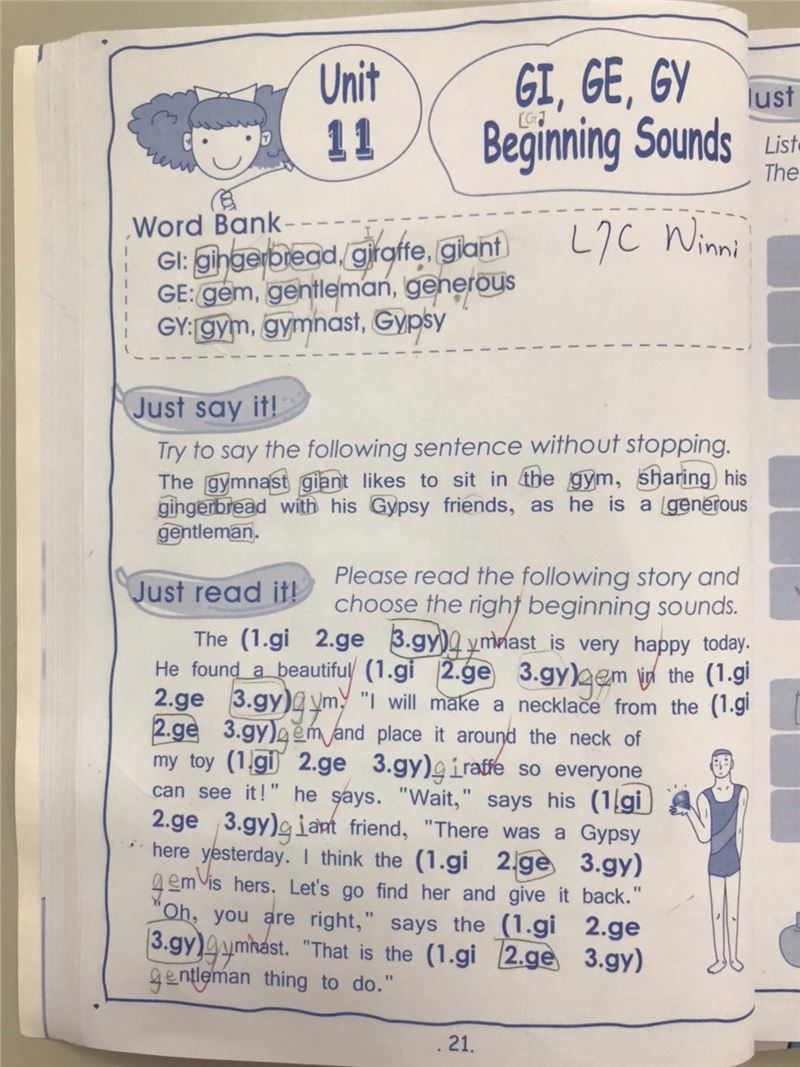 Unit
11
GI, GE, GY
[G]
Beginning Sounds
Word Bank
GI: gingerbread, giraffe, giant
GE: gem, gentleman, generous
GY: gym, gymnast, Gypsy
Just say it!
Try to say the following sentence without stopping.
The gymnast giant likes to sit in the gym, sharing his
gingerbread with his Gypsy friends, as he is a generous
gentleman.
Just read it!
Please read the following story and
choose the right beginning sounds.
The (1.gi 2.ge 3.gy)gymnast is very happy today.
He found a beautiful (1.gi 2.ge 3.gy)gem in the (1.gi
2.ge 3.gy)gym. "I will make a necklace from the (1.gi
2.ge 3.gy)gem and place it around the neck of
my toy (1.gi 2.ge 3.gy)giraffe so everyone
can see it!" he says. "Wait," says his (1.gi
2.ge 3.gy)giant friend, "There was a Gypsy
here yesterday. I think the (1.gi 2.ge 3.gy)
gem is hers. Let's go find her and give it back."
"Oh, you are right," says the (1.gi 2.ge
3.gy)gymnast. "That is the (1.gi 2.ge 3.gy)
gentleman thing to do."
. 21.
Just
List
The